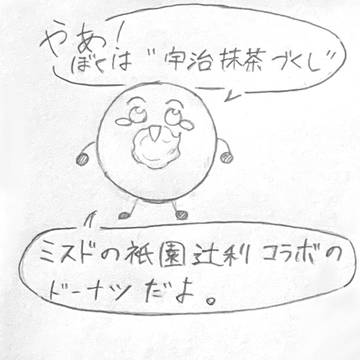 やあ！
ぼくは"宇治抹茶づくし"
ミスドの祇園辻利コラボの
ドーナツだよ。